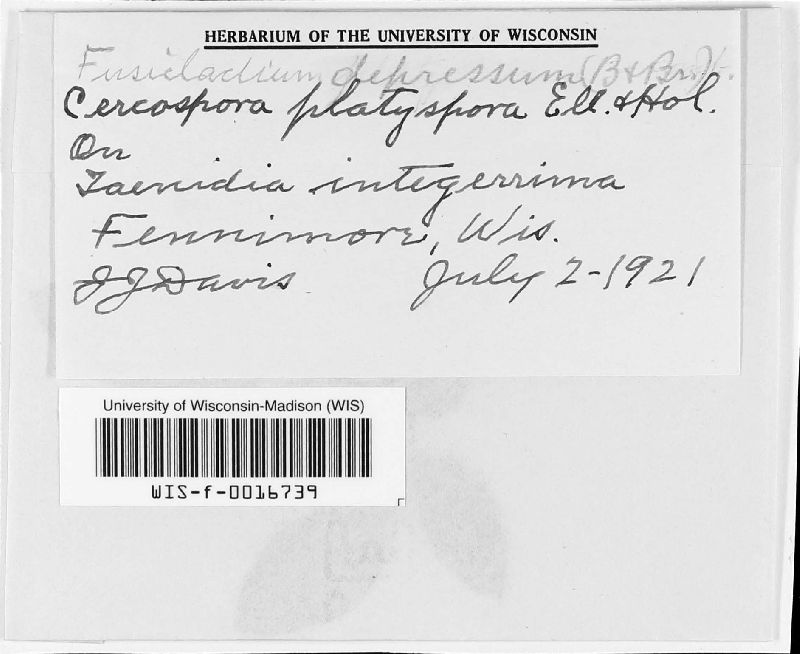 HERBARIUM OF THE UNIVERSITY OF WISCONSIN
Fusicladium depressum (B & Br.)
Cercospora platyspora Ell. & Hol.
On
Taenidia integerrima
Fennimore, Wis.
JJ Davis July 2-1921
University of Wisconsin-Madison (WIS)
WIS-f-0016739